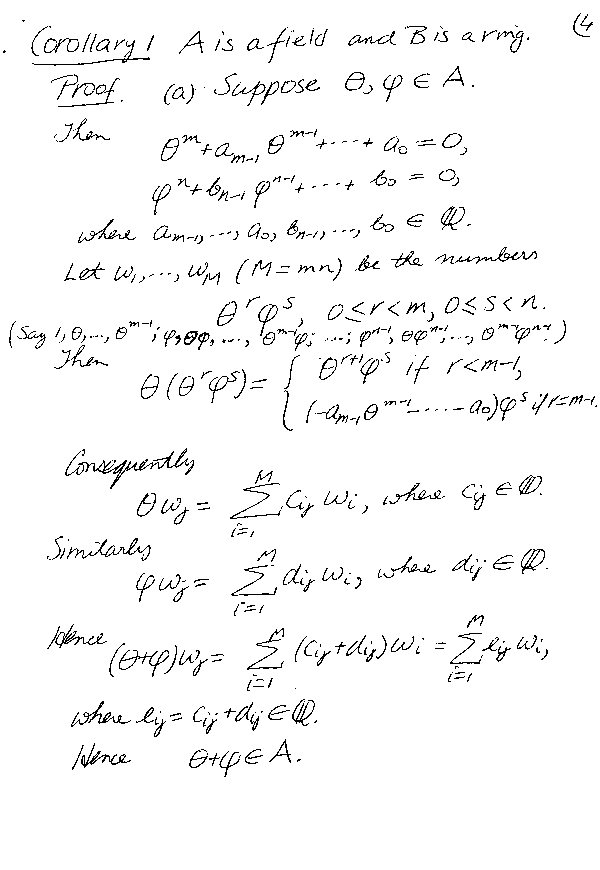 (4
. Corollary 1 A is a field and B is a ring.
Proof. (a) Suppose θ, φ ∈ A.
Then
θ^m + a_{m-1} θ^{m-1} + ··· + a_0 = 0,
φ^n + b_{n-1} φ^{n-1} + ··· + b_0 = 0,
where a_{m-1}, ..., a_0, b_{n-1}, ..., b_0 ∈ ℚ.
Let ω_1, ..., ω_M (M = mn) be the numbers
θ^r φ^s, 0 ≤ r < m, 0 ≤ s < n.
(Say 1, θ, ..., θ^{m-1}; φ, θφ, ..., θ^{m-1}φ; ...; φ^{n-1}, θφ^{n-1}, ..., θ^{m-1}φ^{n-1}.)
Then
θ(θ^r φ^s) = { θ^{r+1} φ^s if r < m-1,
(-a_{m-1} θ^{m-1} - ··· - a_0) φ^s if r = m-1.
Consequently
θω_j = ∑_{i=1}^{M} c_{ij} ω_i, where c_{ij} ∈ ℚ.
Similarly
φω_j = ∑_{i=1}^{M} d_{ij} ω_i, where d_{ij} ∈ ℚ.
Hence
(θ+φ)ω_j = ∑_{i=1}^{M} (c_{ij} + d_{ij}) ω_i = ∑_{i=1}^{M} e_{ij} ω_i,
where e_{ij} = c_{ij} + d_{ij} ∈ ℚ.
Hence θ+φ ∈ A.